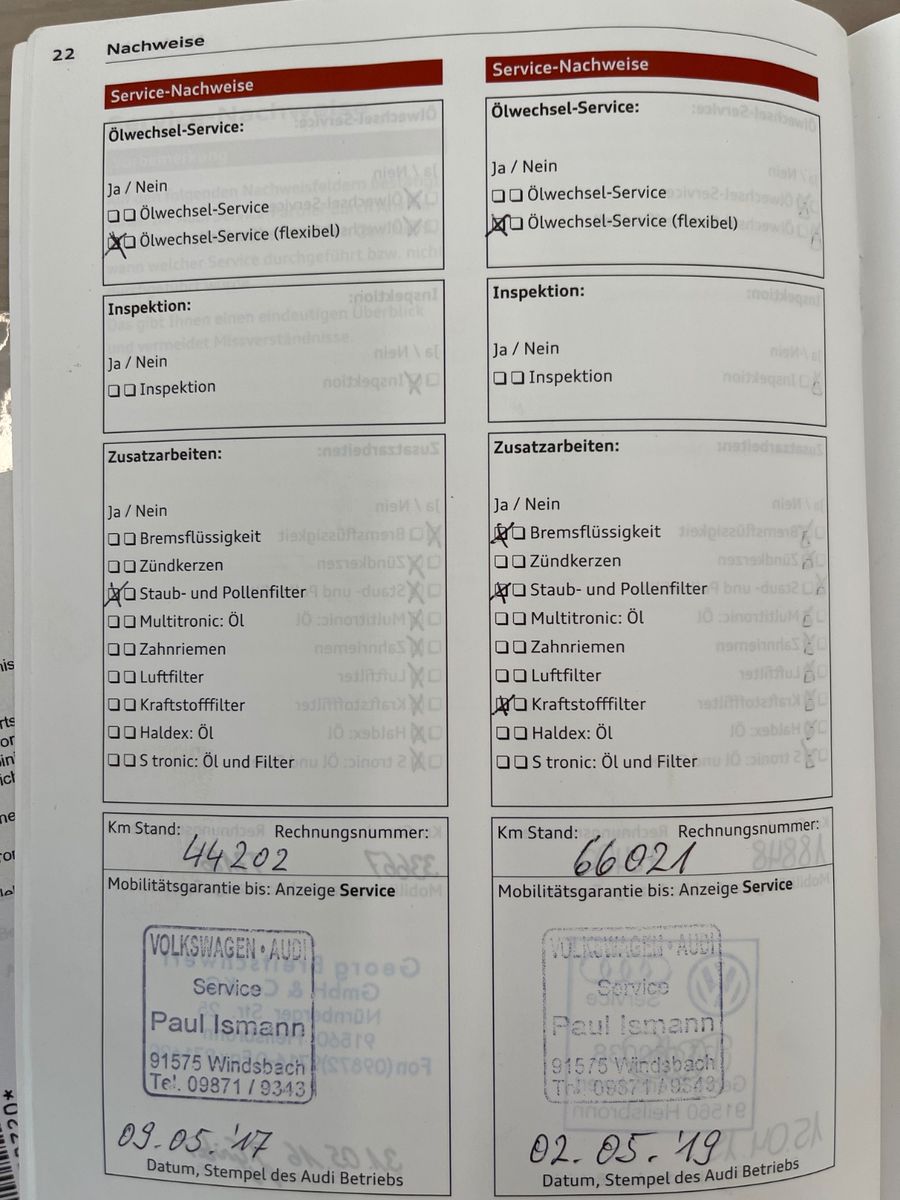 22 Nachweise
Service-Nachweise
Ölwechsel-Service:
Ja / Nein
Ölwechsel-Service
Ölwechsel-Service (flexibel)
Inspektion:
Ja / Nein
Inspektion
Zusatzarbeiten:
Ja / Nein
Bremsflüssigkeit
Zündkerzen
Staub- und Pollenfilter
Multitronic: Öl
Zahnriemen
Luftfilter
Kraftstofffilter
Haldex: Öl
S tronic: Öl und Filter
Km Stand: Rechnungsnummer:
44202
Mobilitätsgarantie bis: Anzeige Service
VOLKSWAGEN • AUDI
Service
Paul Ismann
91575 Windsbach
Tel. 09871 / 9343
09.05.'17
Datum, Stempel des Audi Betriebs
Service-Nachweise
Ölwechsel-Service:
Ja / Nein
Ölwechsel-Service
Ölwechsel-Service (flexibel)
Inspektion:
Ja / Nein
Inspektion
Zusatzarbeiten:
Ja / Nein
Bremsflüssigkeit
Zündkerzen
Staub- und Pollenfilter
Multitronic: Öl
Zahnriemen
Luftfilter
Kraftstofffilter
Haldex: Öl
S tronic: Öl und Filter
Km Stand: Rechnungsnummer:
66021
Mobilitätsgarantie bis: Anzeige Service
VOLKSWAGEN • AUDI
Service
Paul Ismann
91575 Windsbach
09871 / 9343
02.05.'19
Datum, Stempel des Audi Betriebs